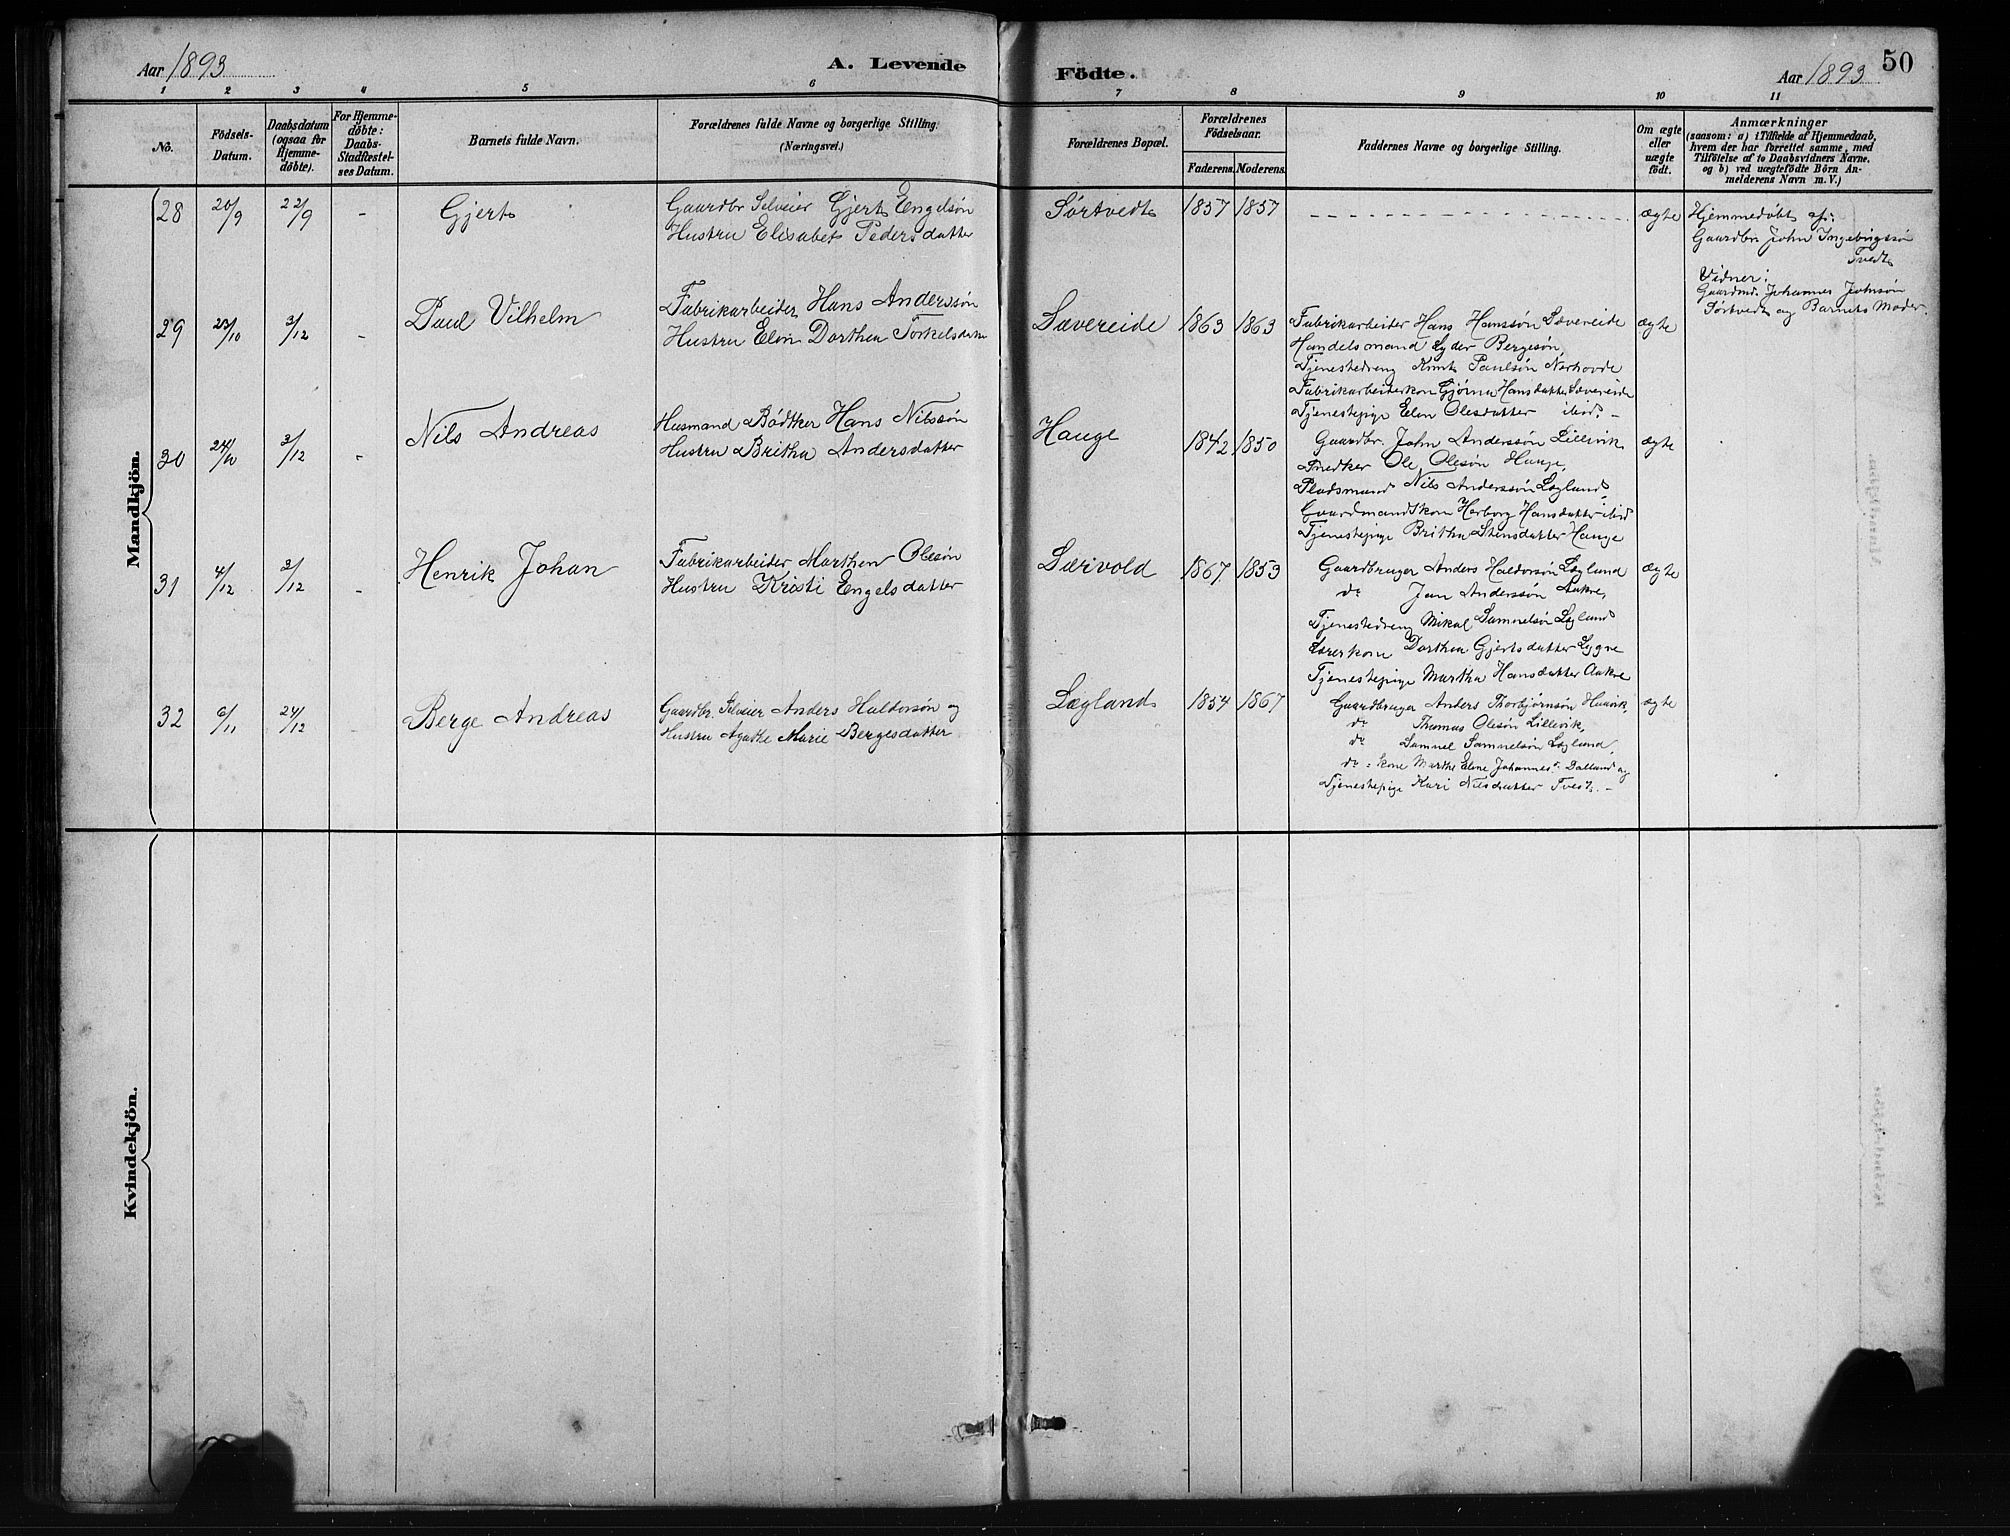 Aar 1893
A. Levende
Födte.
Aar 1893
50
1 2 3 4 5 6 7 8 9 10 11
No.
Födsels-
Datum.
Daabsdatum
(ogsaa for
Hjemme-
döbte).
For Hjemme-
döbte:
Daabs-
Stadfæstel-
ses Datum.
Barnets fulde Navn.
Forældrenes fulde Navne og borgerlige Stilling.
(Næringsvei.)
Forældrenes Bopæl.
Forældrenes
Födselsaar.
Faderens. Moderens.
Faddernes Navne og borgerlige Stilling.
Om ægte
eller
uægte
födt.
Anmærkninger
(saasom: a) i Tilfælde af Hjemmedaab,
hvem der har forrettet samme, med
Tilföielse af to Daabsvidners Navne,
og b) ved uægtefödte Börn An-
melderens Navn m. V.)
Mandkjön.
28 20/9 22/9 - Gjert
Gaardbr Selveier Gjert Engelsøn
Hustru Elisabet Pedersdatter
Sørtvedt 1857 1857
ægte
Hjemmedøbt af:
Gaardbr John Ingebrigtsøn
Tvedt
Vidner:
Gaardmd. Johannes Johnsøn
Sørtvedt og Barnets Moder.
29 23/10 3/12 - Paul Vilhelm
Fabrikarbeider Hans Anderssøn
Hustru Elen Dorthea Torkelsdatter
Sævereide 1863 1863
Fabrikarbeider Hans Hanssøn Sævereide
Handelsmand Lyder Bergesøn,
Tjenestedreng Knut Paulsøn Nerhovde
Fabrikarbeiderkon Gjørna Hansdatter Sævereide
Tjenestepige Elen Olesdatter ibid. -
ægte
30 24/10 3/12 - Nils Andreas
Husmand Bødtker Hans Nilssøn
Hustru Britha Andersdatter
Hauge 1842 1850
Gaardbr. John Anderssøn Lillevik
Snedker Ole Olesøn Hauge,
Pladsmand Nils Anderssøn Lægland,
Gaardmandskon Herborg Hansdatter ibid
Tjenestepige Britha Stensdatter Hauge
ægte
31 4/12 3/12 - Henrik Johan
Fabrikarbeider Marthen Olesøn
Hustru Kristi Engelsdatter
Særvold 1867 1853
Gaardbruger Anders Haldorsøn Lægland
do Jan Anderssøn Aakre,
Tjenestedreng Mikal Samuelsøn Lægland
Lærerkone Dorthea Gjertsdatter Lygre
Tjenestepige Martha Hansdatter Aakre
ægte
32 6/11 24/12 Berge Andreas
Gaardbr. Selveier Anders Haldorsøn og
Hustru Agathe Marie Bergesdatter
Lægland 1854 1867
Gaardbruger Anders Thorbjørnsøn Haavik,
do Thomas Olesøn Lillevik,
do Samuel Samuelsøn Lægland,
do: kone Marthe Eline Johannesd. Dalland og
Tjenestepige Kari Nilsdatter Tvedt. -
ægte
Kvindekjön.